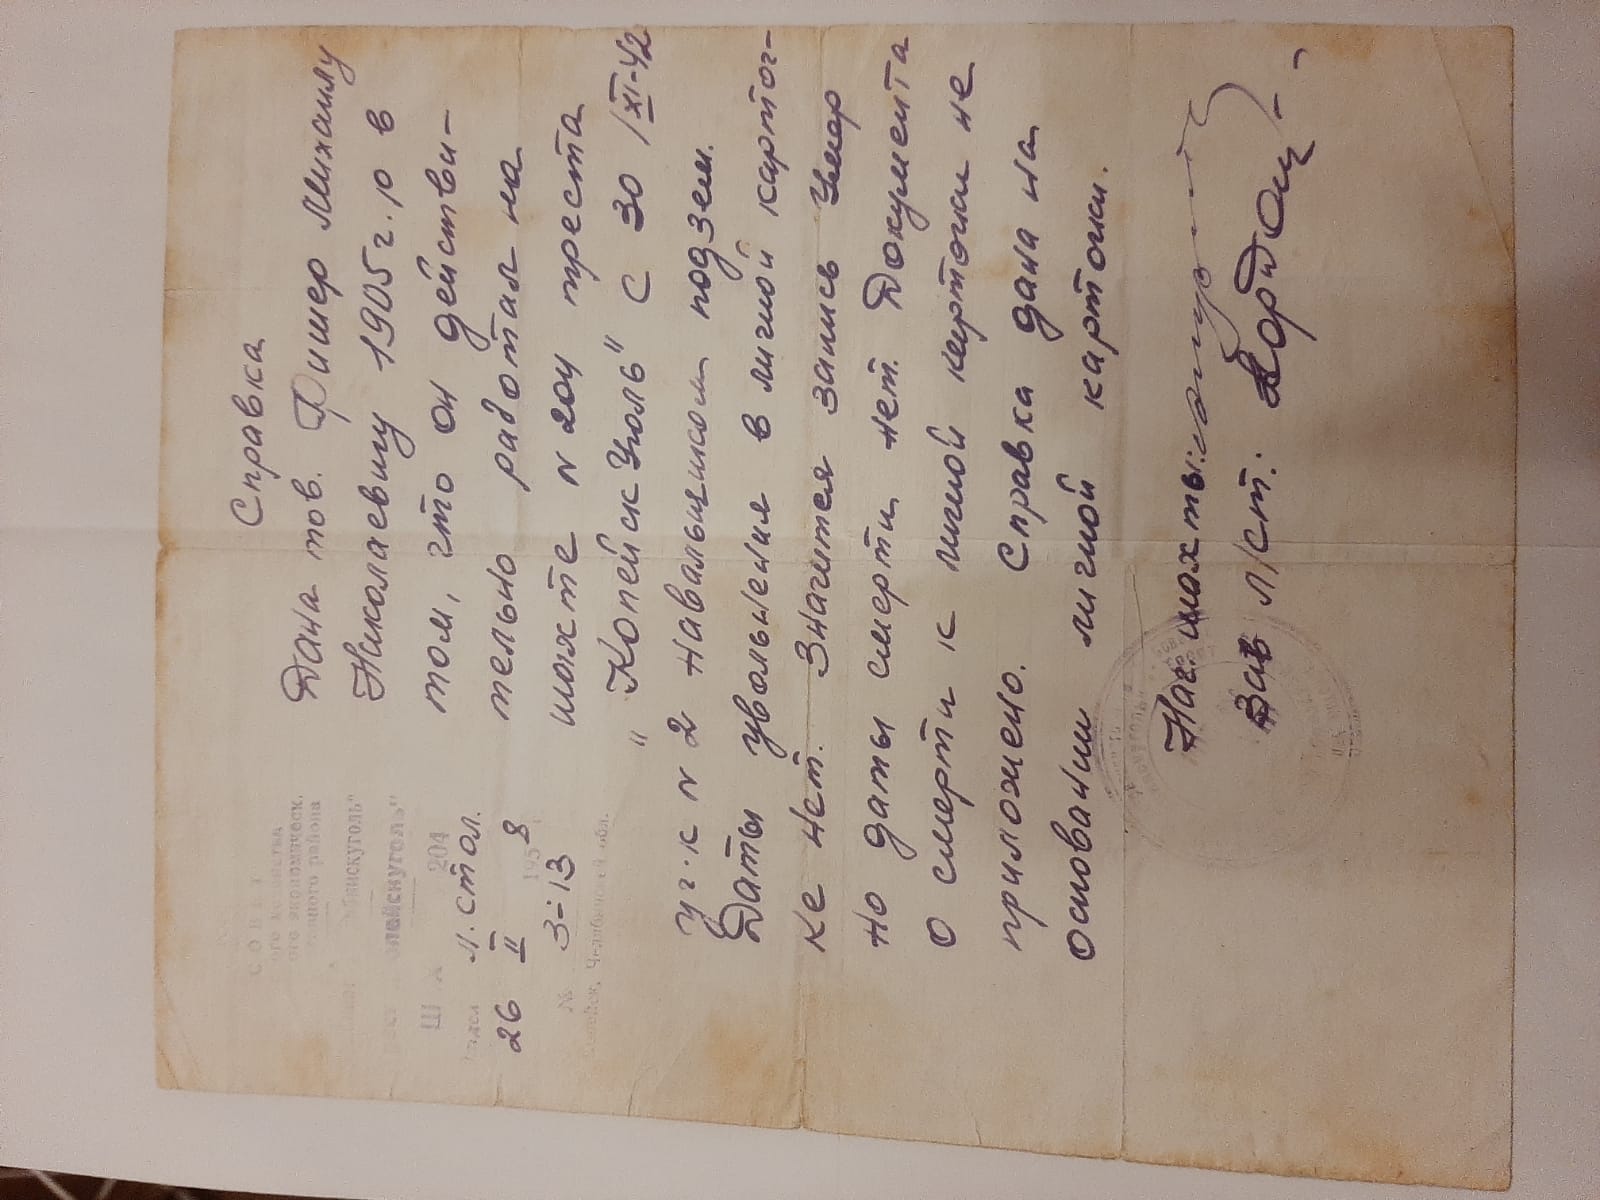 СОВЕТ
Ш А 204
л. стол.
26 II 1958
№ 3-13
Челябинской обл.
Справка
Дана тов. Фишер Михаилу
Николаевичу 1905 г. ю в
том, что он действи-
тельно работал на
шахте N 204 треста
"Копейск Уголь" с 30/XI-42
уч-к N 2 Навальщиком подзем.
Даты увольнения в личной карточ-
ке нет. Значится запись Умер
но даты смерти нет. Документа
о смерти к личной карточки не
приложено. Справка дана на
основании личной карточки.
Нач шахты:
Зав л/ст: